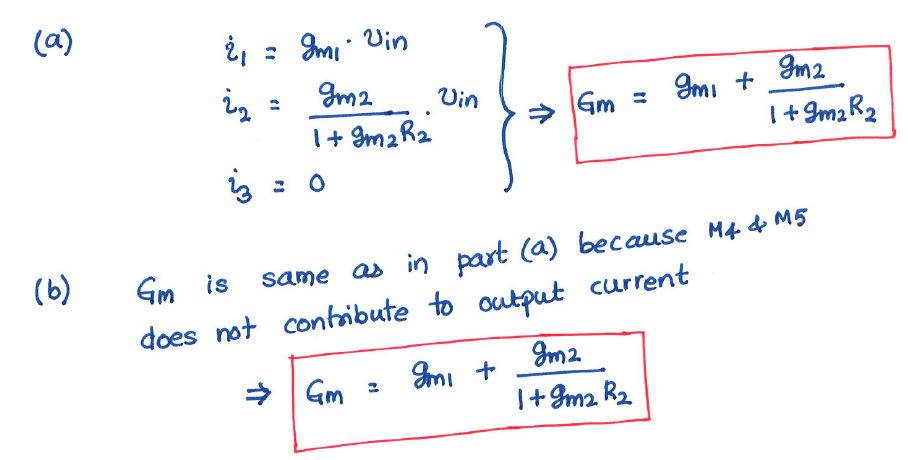 (a) i₁ = gm₁ · Vin
i₂ = gm₂ / (1 + gm₂R₂) · Vin
i₃ = 0
} ⇒ Gm = gm₁ + gm₂ / (1 + gm₂R₂)
(b) Gm is same as in part (a) because M4 & M5
does not contribute to output current
⇒ Gm = gm₁ + gm₂ / (1 + gm₂ R₂)